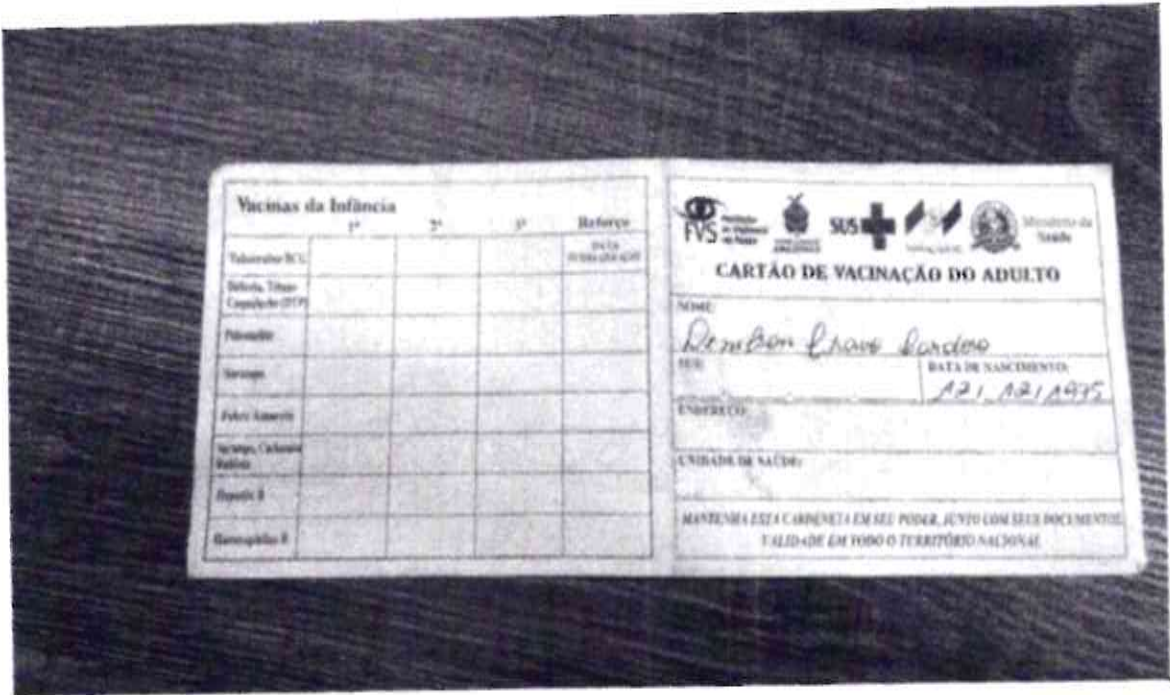 Vacinas da Infância
1ª 2ª 3ª Reforço
Tuberculose BCG
Difteria, Tétano
Coqueluche (DTP)
Poliomielite
Sarampo
Febre Amarela
Sarampo, Caxumba
Rubéola
Hepatite B
Haemophilus B
FVS
SUS
Ministério da
Saúde
CARTÃO DE VACINAÇÃO DO ADULTO
NOME:
Cardoso
SUS:
DATA DE NASCIMENTO:
12/12/1975
ENDEREÇO:
UNIDADE DE SAÚDE:
MANTENHA ESTA CARDENETA EM SEU PODER, JUNTO COM SEUS DOCUMENTOS.
VALIDADE EM TODO O TERRITÓRIO NACIONAL